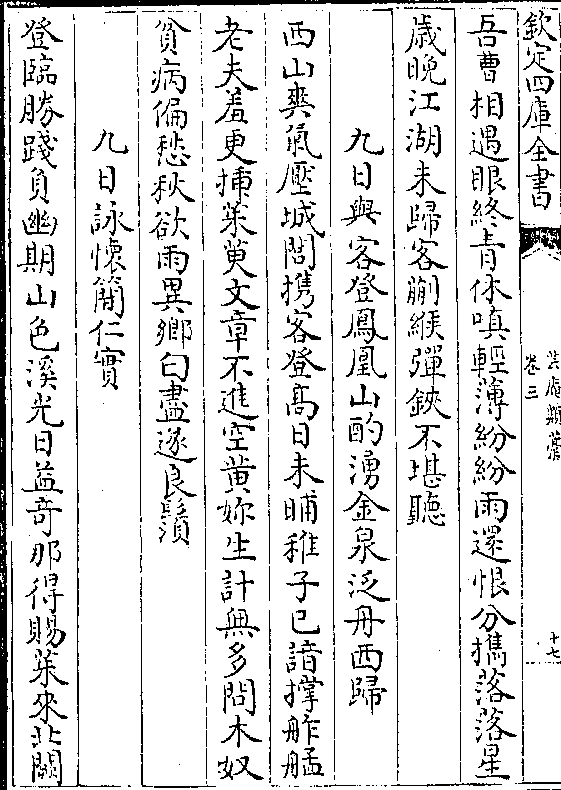 欽定四庫全書
芸庵類藁
卷三
十七
吾曹相遇眼終青休嗔輕薄紛紛雨還恨分擕落落星
歲晚江湖未歸客蒯緱彈鋏不堪聽
九日與客登鳳凰山酌湧金泉泛舟西歸
西山爽氣壓城闍携客登高日未晡稚子已諳撑舴艋
老夫羞更揷茱萸文章不進空黄妳生計無多問木奴
貧病偏愁秋欲雨異鄉白盡逐良鬚
九日詠懷簡仁實
登臨勝踐負幽期山色溪光日益奇那得賜茱來北闕